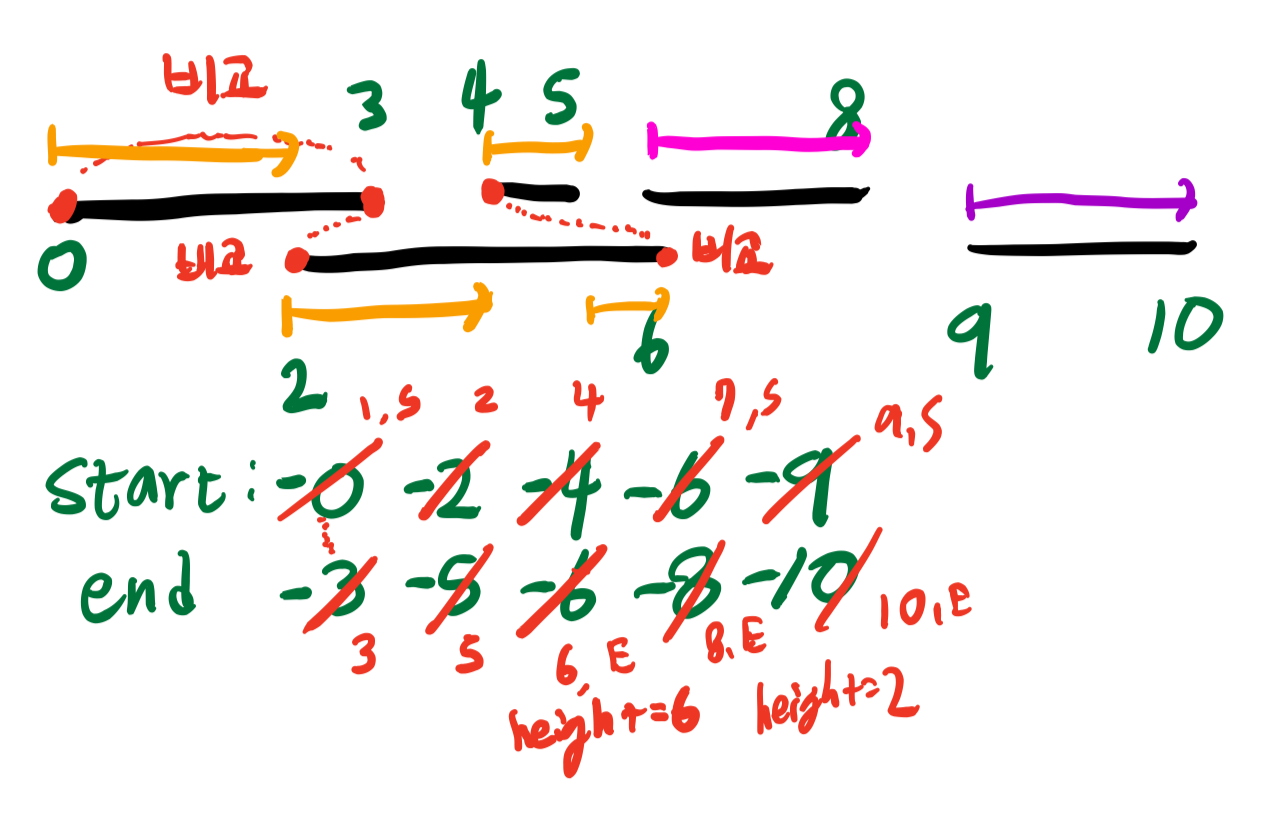 비교
3 4 5 8
0 비교 비교
2 6 9 10
1,S 2 4 7,S 9,S
start: -0 -2 -4 -6 -9
end -3 -5 -6 -8 -10
3 5 6,E 8,E 10,E
height+=6 height+=2